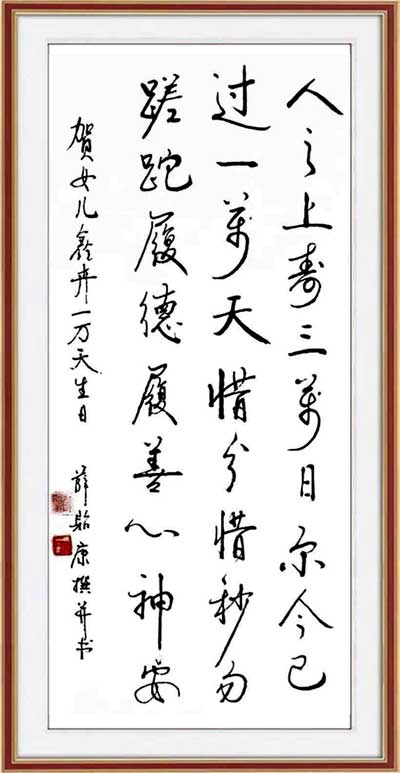 人之上寿三萬日尔今已
过一萬天惜分惜秒勿
蹉跎履德履善心神安
贺女儿鑫卉一万天生日
薛贻康撰并书